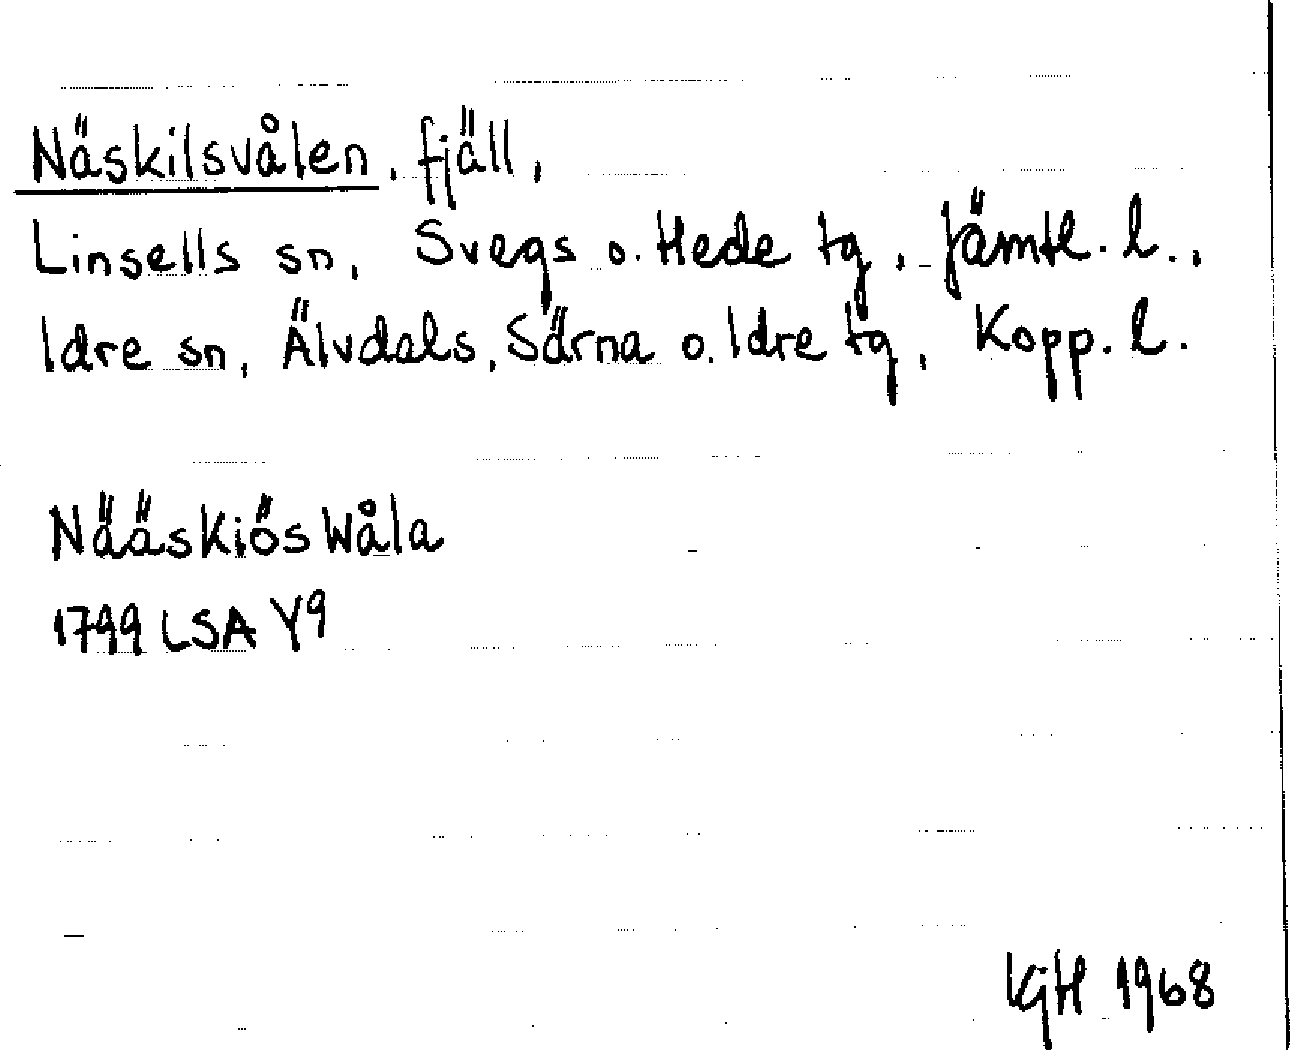 Näskilsvålen, fjäll,
Linsells sn, Svegs o. Hede tg, Jämtl. l.,
Idre sn, Älvdals, Särna o. Idre tg, Kopp. l.
Nääskiös Wåla
1799 LSA Y9
KGH 1968